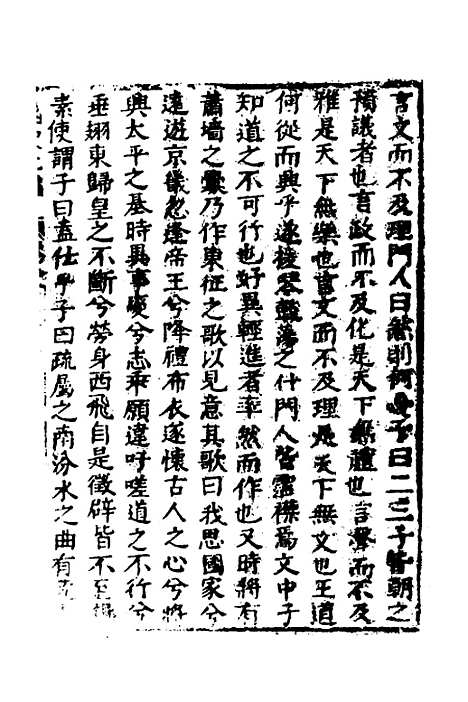 言文而不及理門人曰然則何子曰二三子皆朝之
預議者也言政而不及化是天下無禮也言聲而不及
雅是天下無樂也言文而不及理是天下無文也王道
何從而興乎遂援琴鼓蕩之什門人皆霑襟焉文中子
知道之不可行也好異輕進者率然而作也又時將有
蕭墻之釁乃作東征之歌以見意其歌曰我思國家兮
遠遊京畿忽逢帝王兮降禮布衣遂懷古人之心兮將
興太平之基時異事變兮志乖願違吁嗟道之不行兮
垂翅東歸皇之不斷兮勞身西飛自是徵辟皆不至
素使謂子曰盍仕乎子曰疏屬之南汾水之曲有